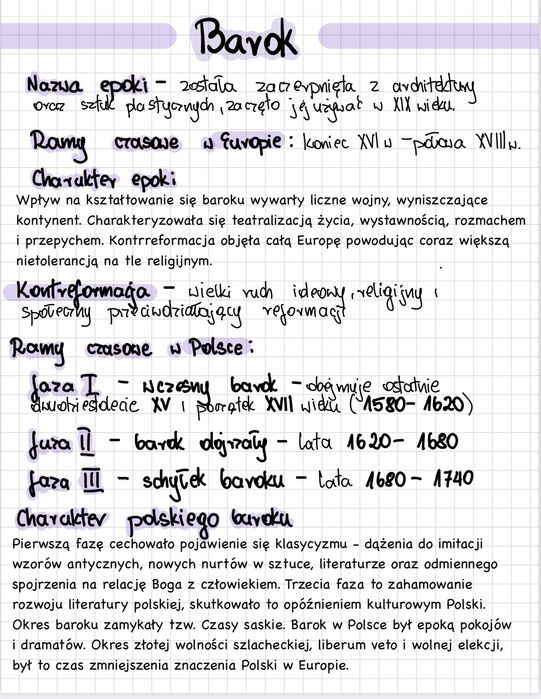 Barok
Nazwa epoki – została zaczerpnięta z architektury
oraz sztuk plastycznych, zaczęto jej używać w XIX wieku.
Ramy czasowe w Europie: koniec XVI w – połowa XVIII w.
Charakter epoki:
Wpływ na kształtowanie się baroku wywarły liczne wojny, wyniszczające
kontynent. Charakteryzowała się teatralizacją życia, wystawnością, rozmachem
i przepychem. Kontrreformacja objęła całą Europę powodując coraz większą
nietolerancją na tle religijnym.
Kontreformacja – wielki ruch ideowy, religijny i
społeczny przeciwdziałający reformacji
Ramy czasowe w Polsce:
faza I – wczesny barok – obejmuje ostatnie
dwudziestolecie XV i początek XVII wieku (1580–1620)
faza II – barok dojrzały – lata 1620–1680
faza III – schyłek baroku – lata 1680–1740
Charakter polskiego baroku
Pierwszą fazę cechowało pojawienie się klasycyzmu – dążenia do imitacji
wzorów antycznych, nowych nurtów w sztuce, literaturze oraz odmiennego
spojrzenia na relację Boga z człowiekiem. Trzecia faza to zahamowanie
rozwoju literatury polskiej, skutkowało to opóźnieniem kulturowym Polski.
Okres baroku zamykały tzw. Czasy saskie. Barok w Polsce był epoką pokojów
i dramatów. Okres złotej wolności szlacheckiej, liberum veto i wolnej elekcji,
był to czas zmniejszenia znaczenia Polski w Europie.